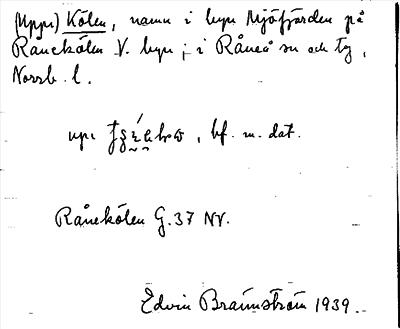 (Uppe) Kölen, namn i byn Mjöfjärden på
Rånekölen V. byn; i Råneå sn och tg,
Norrb. l.
uppe , bf. m. dat.
Rånekölen G. 37 NV.
Edvin Brännström 1939.